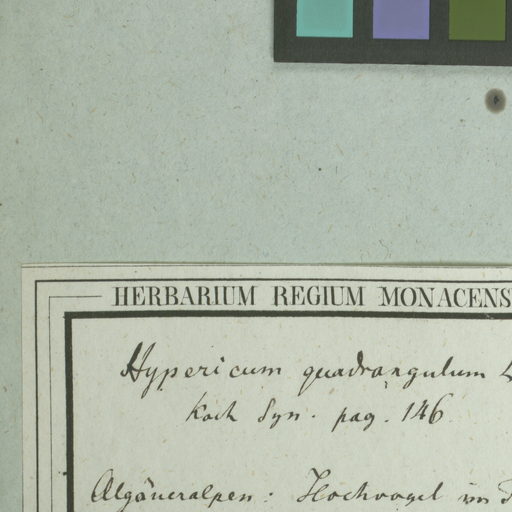 HERBARIUM REGIUM MONACENS
Hypericum quadrangulum L
Koch Syn. pag. 146
Algäueralpen: Hochvogel im